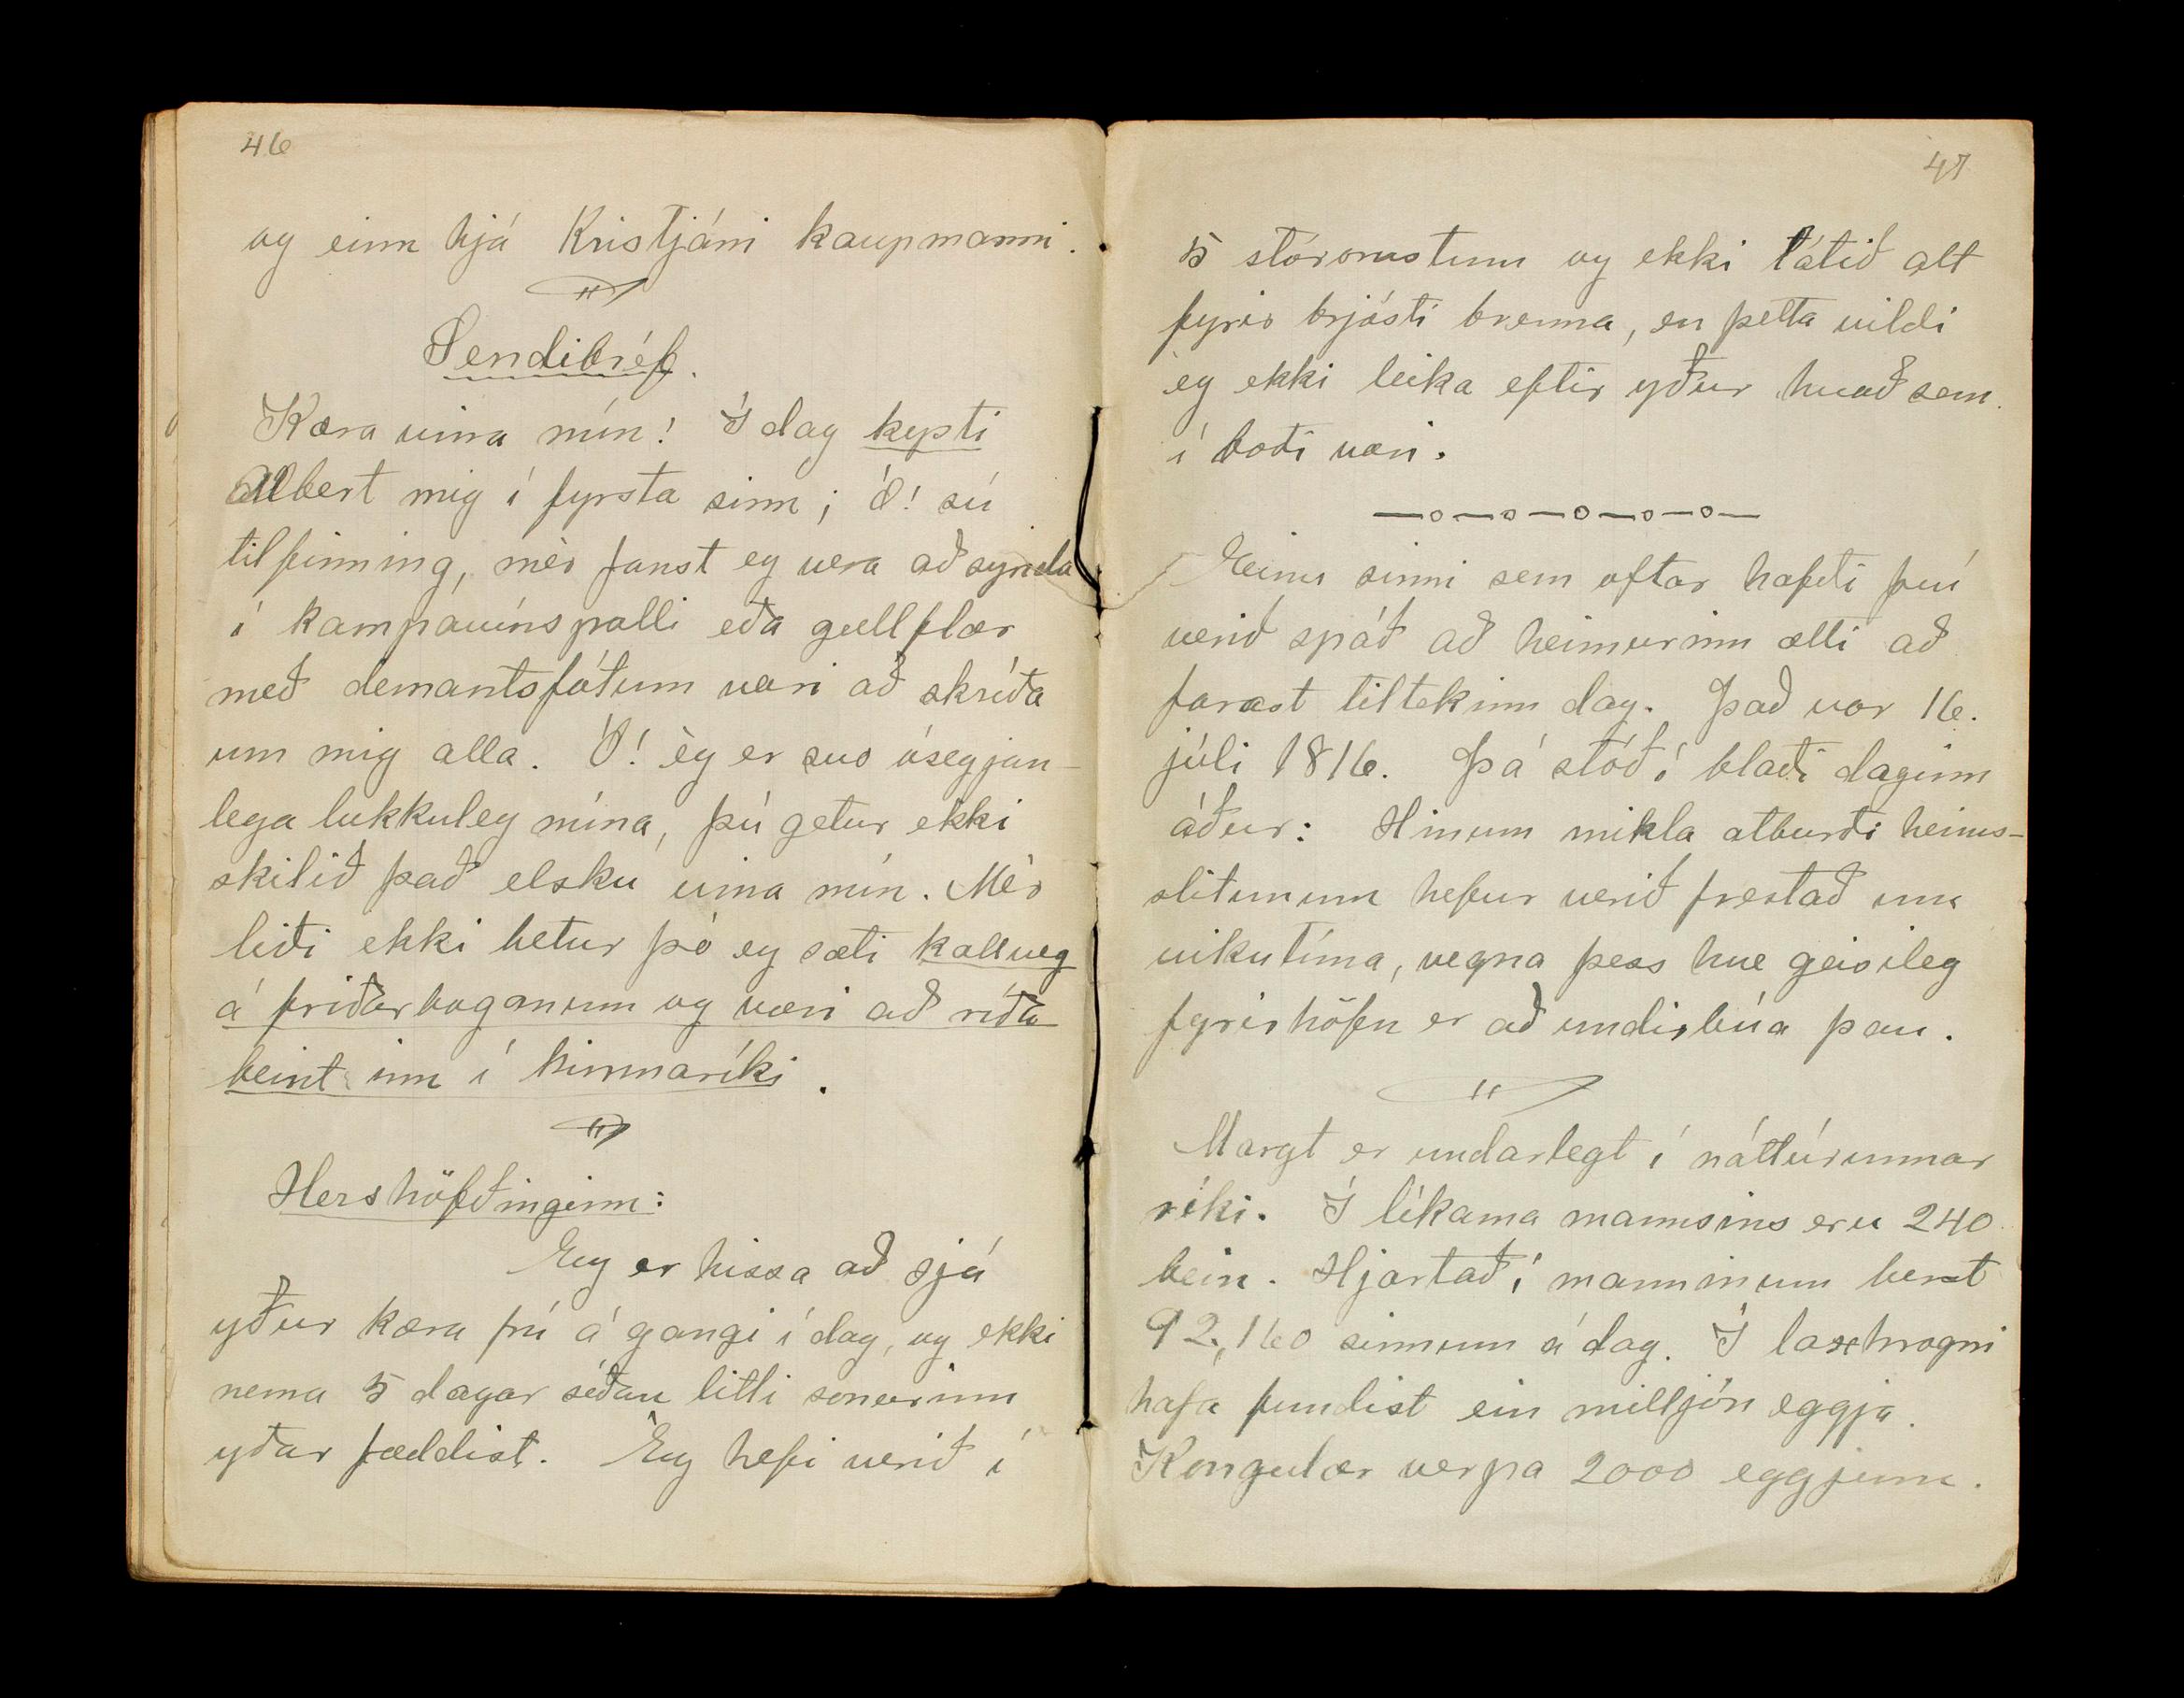 46
og einn hjá Kristjáni kaupmanni.
Sendibréf.
Kæra vina mín! Í dag kysti
Albert mig í fyrsta sinn; Ó! sú
tilfinning, mèr fanst eg vera að synda
í kampavínspolli eða gullflær
með demantsfótum væri að skríða
um mig alla. Ó! èg er svo ósegjan-
lega lukkuleg núna, þú getur ekki
skilið það elsku vina mín. Mèr
liði ekki betur þó eg sæti kallveg
á friðarboganum og væri að ríða
beint inn í himnaríki.
Hershöfðinginn:
Eg er hissa að sjá
yður kæra frú á gangi í dag, og ekki
nema 5 dagar síðan litli sonurinn
yðar fæddist. Eg hefi verið í
47
5 stórorustum og ekki látið alt
fyrir brjósti brenna, en þetta vildi
èg ekki leika eftir yður hvað sem
í boði væri.
Einu sinni sem oftar hafði því
verið spáð að heimurinn ætti að
farast tiltekinn dag. Það var 16.
júlí 1816. Þá stóð í blaði daginn
áður: Hinum mikla atburði heims-
slitunum hefur verið frestað um
vikutíma, vegna þess hve geisileg
fyrirhöfn er að undirbúa þau.
Margt er undarlegt í náttúrunnar
ríki. Í líkama mannsins eru 240
bein. Hjartað í manninum berst
92,160 sinnum á dag. Í laxhrogni
hafa fundist ein milljón eggja.
Kongulær verpa 2000 eggjum.